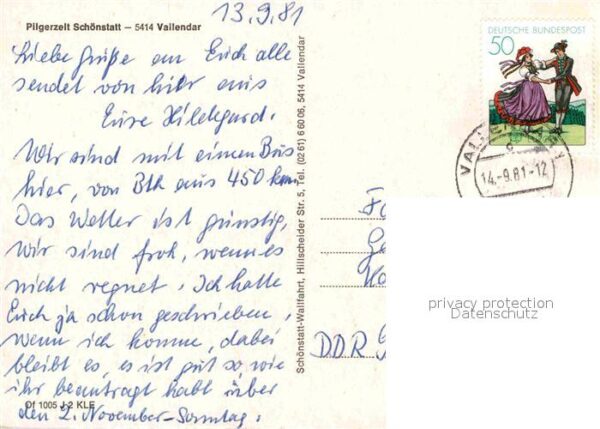 13.9.81
Pilgerzelt Schönstatt – 5414 Vallendar
Liebe Grüße an Euch alle
sendet von hier aus
Eure Hildegard.
Wir sind mit einem Bus
hier, von Bth aus 450 km.
Das Wetter ist günstig,
wir sind froh, wenn es
nicht regnet. Ich hatte
Euch ja schon geschrieben,
wenn ich komme, dabei
bleibt es, es ist gut so, wie
ihr beantragt habt über
den 2. November-Sonntag.
Of 1005 J 2 KLE
Schönstatt-Wallfahrt, Hillscheider Str. 5, Tel. (02 61) 6 60 06, 5414 Vallendar
DEUTSCHE BUNDESPOST
50
VALLE
14.-9.81-12
c
DDR
privacy protection
Datenschutz